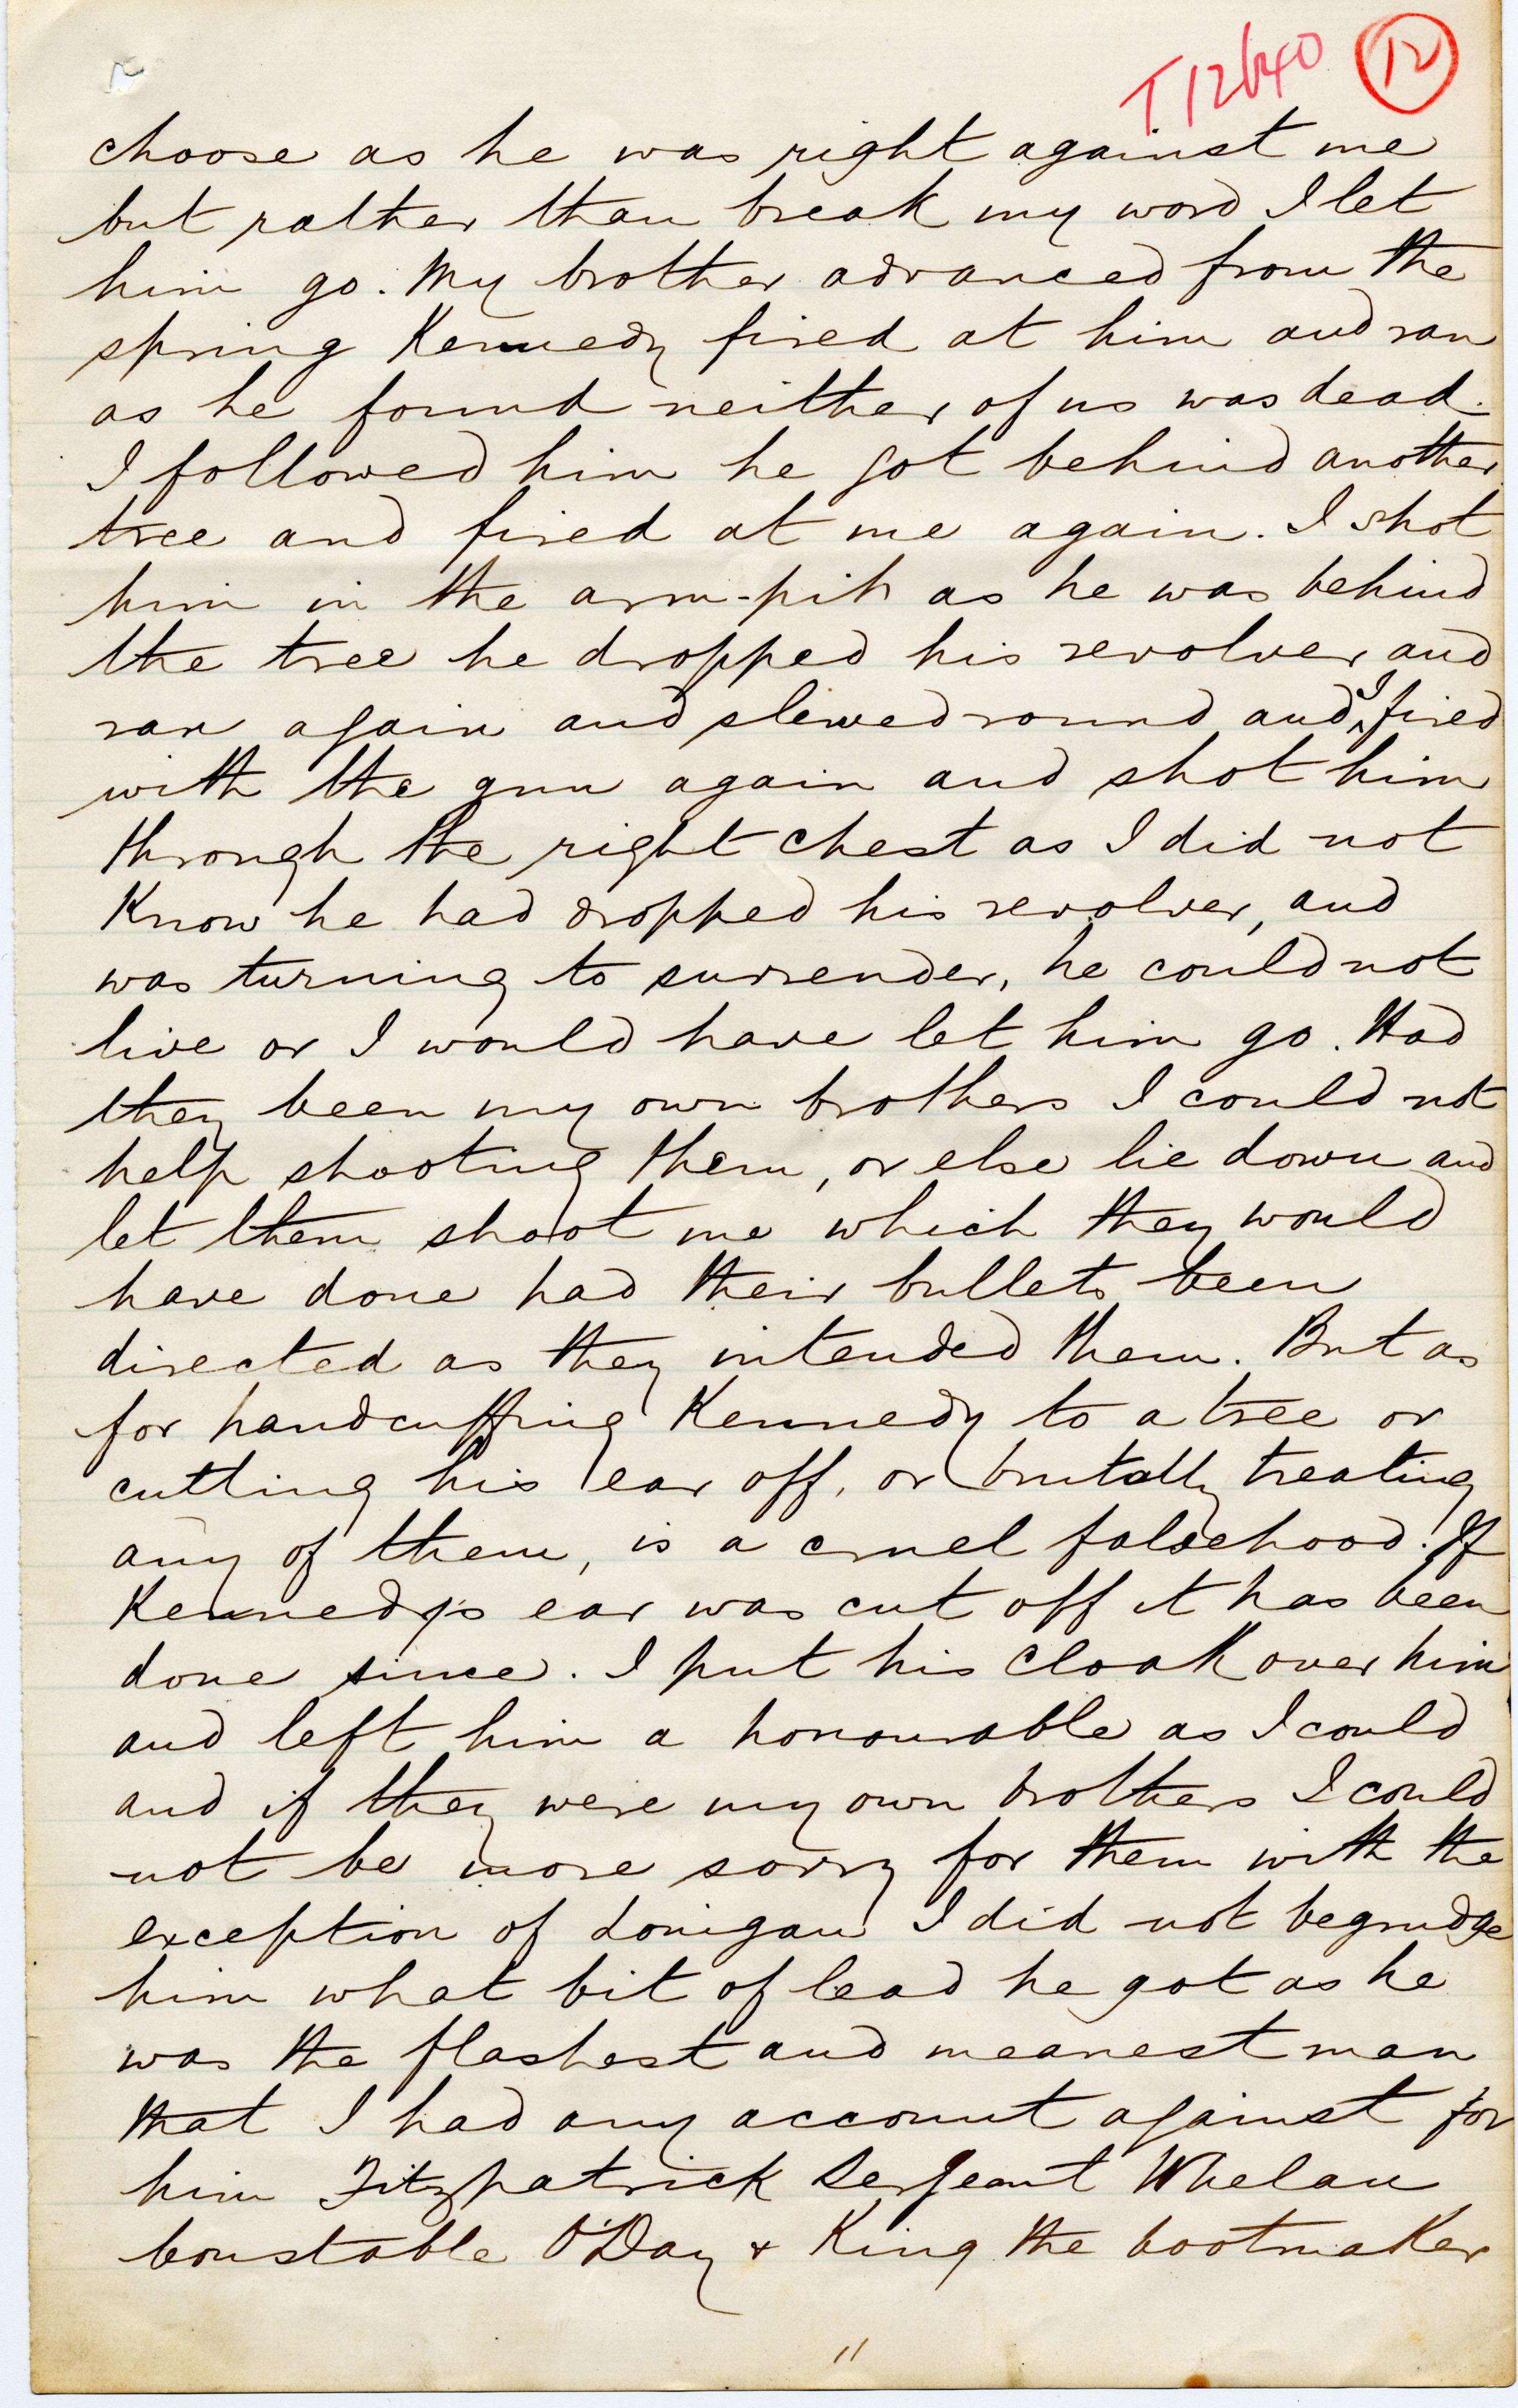 T 12640 12
choose as he was right against me
but rather than break my word I let
him go. My brother advanced from the
spring Kennedy fired at him and ran
as he found neither of us was dead.
I followed him he got behind another
tree and fired at me again. I shot
him in the arm-pit as he was behind
the tree he dropped his revolver and
ran again and slewed round and I fired
with the gun again and shot him
through the right chest as I did not
Know he had dropped his revolver, and
was turning to surrender, he could not
live or I would have let him go. Had
they been my own brothers I could not
help shooting them, or else lie down and
let them shoot me which they would
have done had their bullets been
directed as they intended them. But as
for handcuffing Kennedy to a tree or
cutting his ear off, or brutally treating
any of them, is a cruel falsehood. If
Kennedy's ear was cut off it has been
done since. I put his cloak over him
and left him a honourable as I could
and if they were my own brothers I could
not be more sorry for them with the
exception of Lonigan I did not begrudge
him what bit of lead he got as he
was the flashest and meanest man
that I had any account against for
him Fitzpatrick Sergeant Whelan
Constable O'Day & King the bootmaker
11